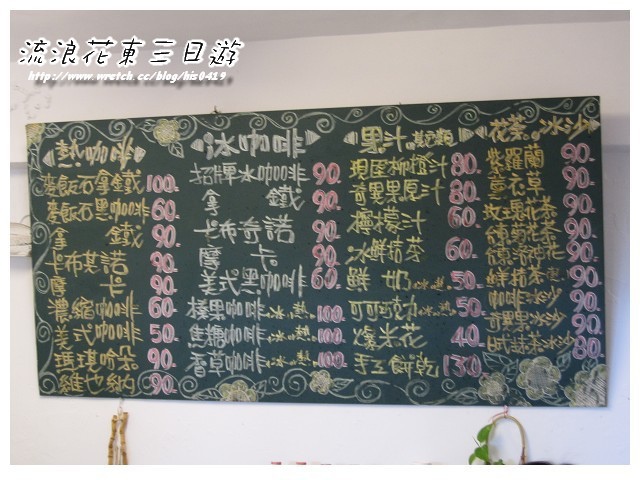 流浪花東三日遊
http://www.wretch.cc/blog/his0419
熱咖啡
麥飯石拿鐵 100.
麥飯石黑咖啡 60.
拿鐵 90.
卡布其諾 90.
摩卡 90.
濃縮咖啡 60
美式咖啡 50
瑪琪哈朵 90.
維也納 90.
冰咖啡
招牌冰咖啡 90.
拿鐵 90.
卡布奇諾 90.
摩卡 90.
美式黑咖啡 60.
榛果咖啡 冰.熱 100.
焦糖咖啡 冰.熱 100.
香草咖啡 冰.熱 100.
果汁.其它類
現匡柳橙汁 80.
奇異果原汁 80.
檸檬汁 60.
冰鮮抹茶 60.
鮮奶 冰.熱 50.
可可 冰.熱 50.
爆米花 40.
手工餅乾 130.
花茶.冰沙
紫羅蘭 90.
薰衣草 90.
玫瑰花茶 90.
90.
90.
鮮抹茶 90.
咖啡冰沙 90.
奇異果冰沙 90.
抹茶冰沙 80.